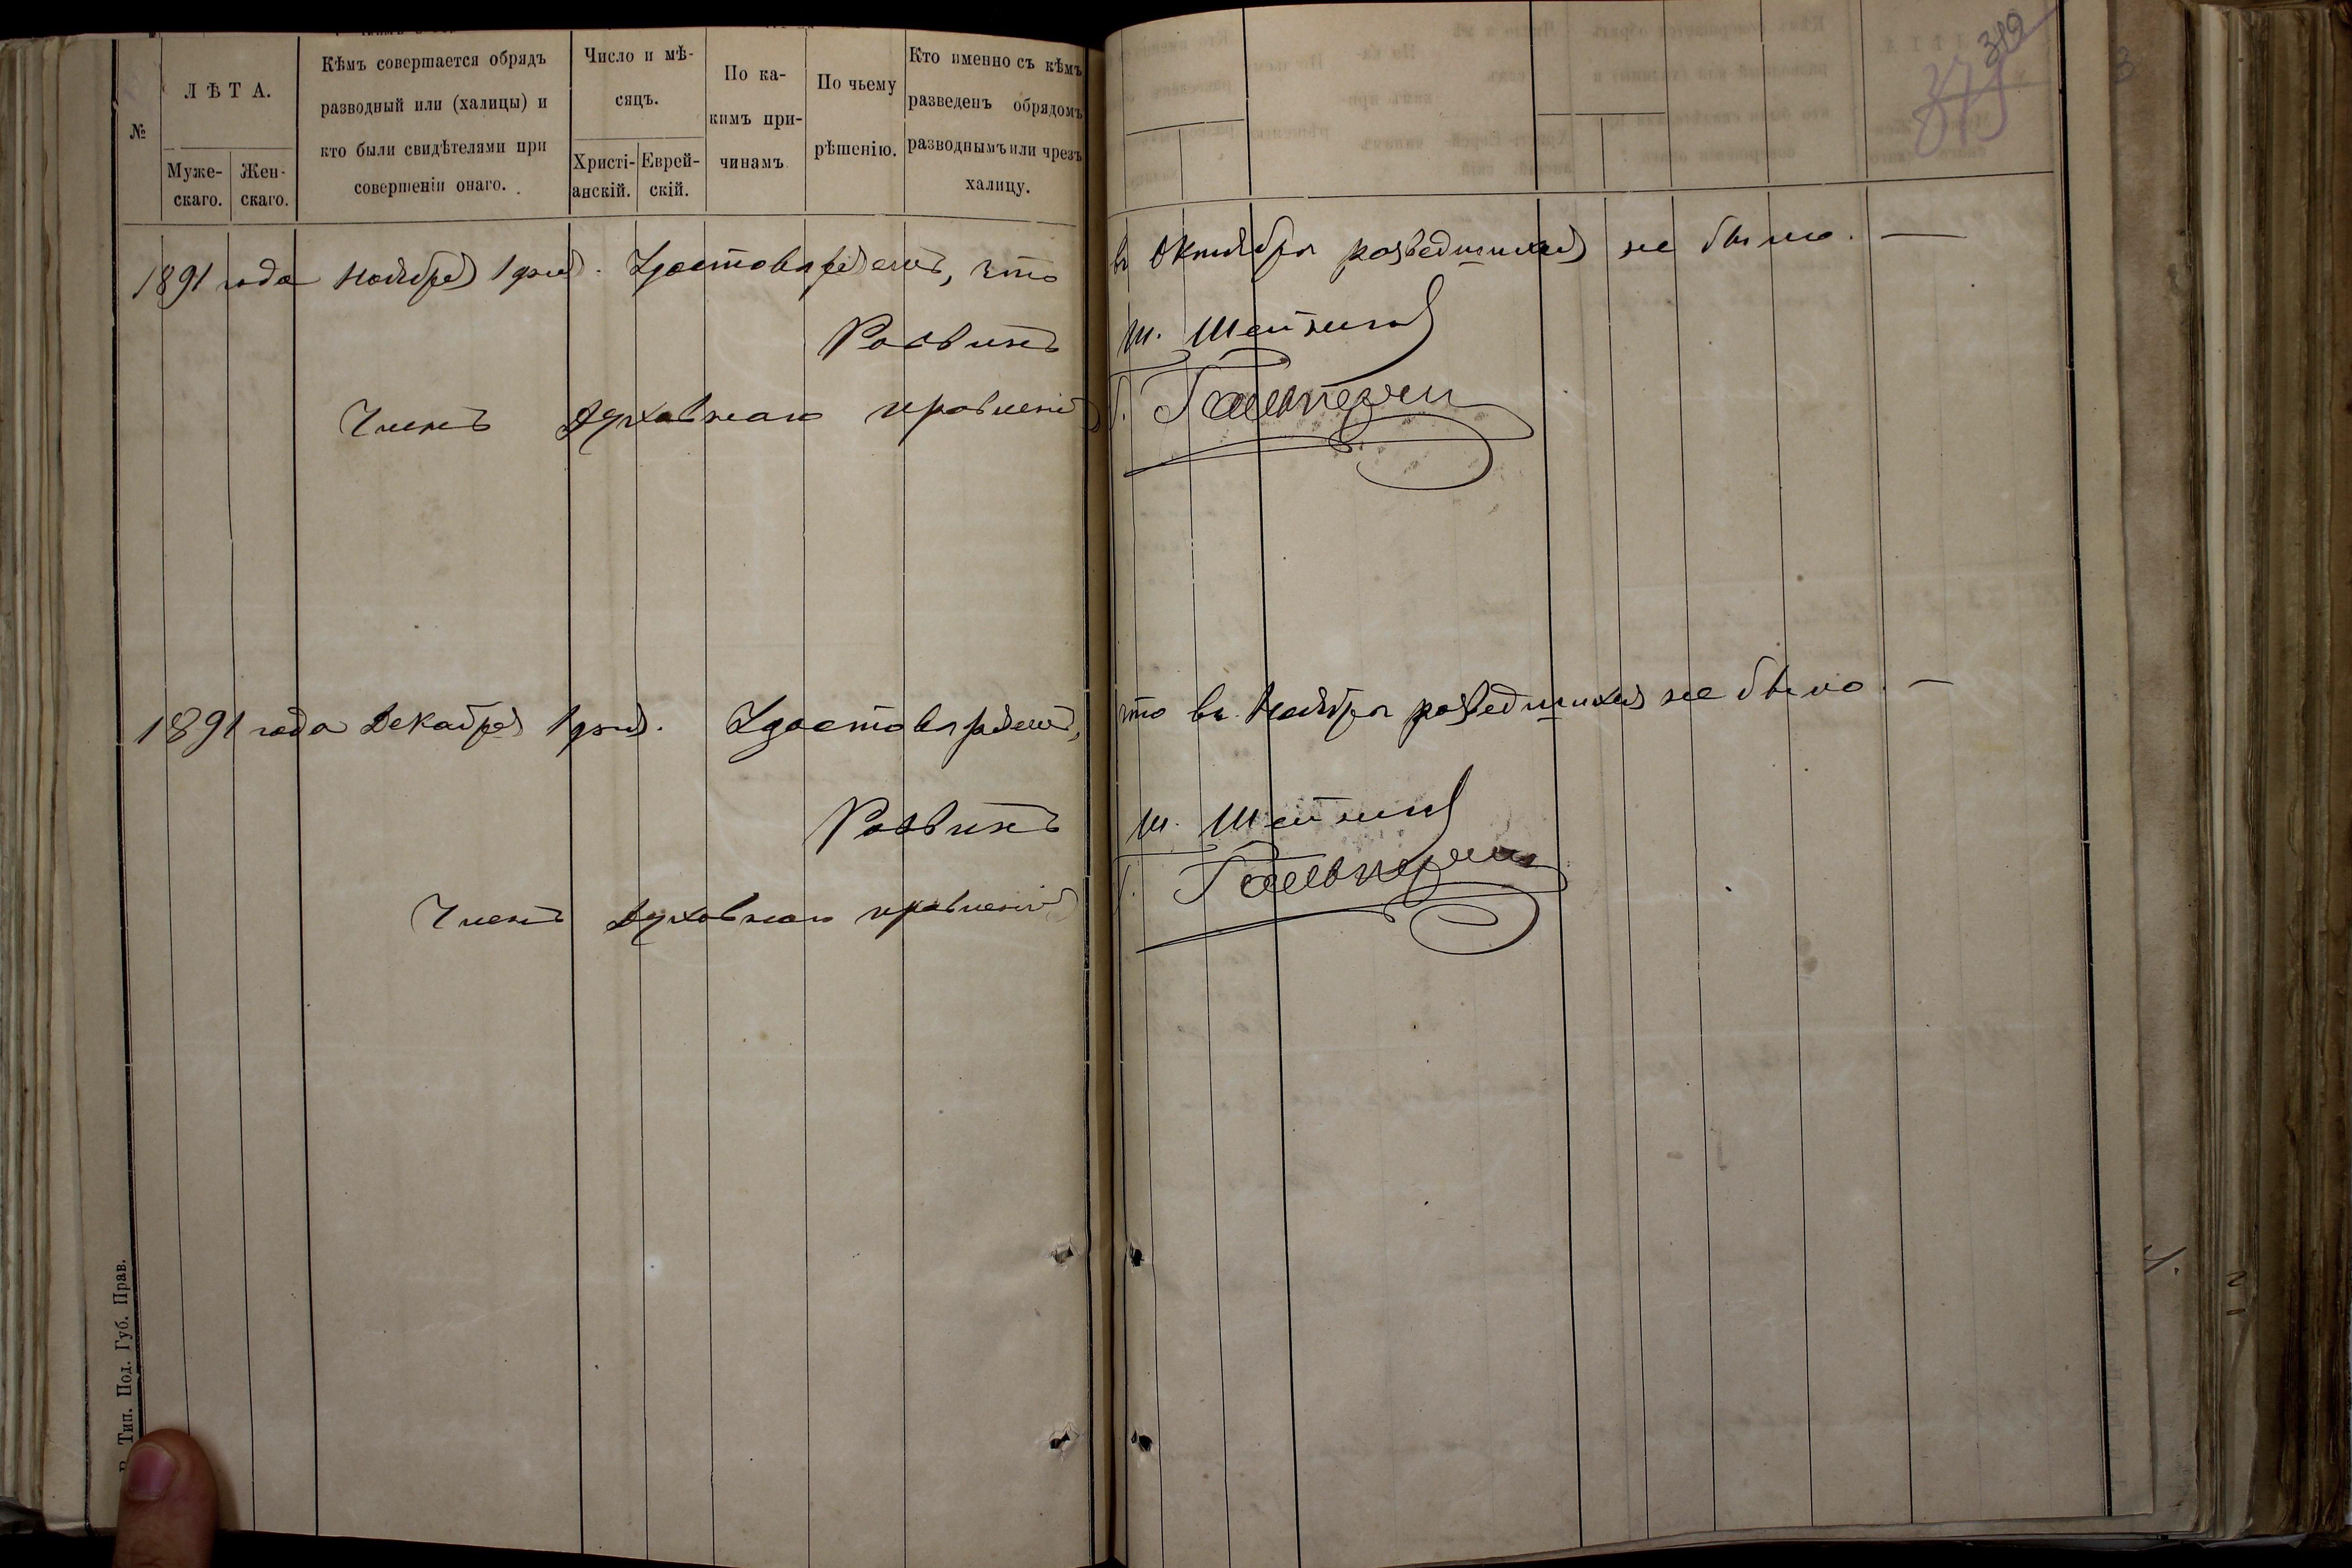 №
ЛѢТА.
Муже-
скаго.
Жен-
скаго.
Кѣмъ совершается обрядъ
разводный или (халицы) и
кто были свидѣтелями при
совершеніи онаго.
Число и мѣ-
сяцъ.
Христі-
анскій.
Еврей-
скій.
По ка-
кимъ при-
чинамъ
По чьему
рѣшенію.
Кто именно съ кѣмъ
разведенъ обрядомъ
разводнымъ или чрезъ
халицу.
1891 года Ноября 1 дня. Удостовѣряемъ, что въ Октябрѣ разведшихся не было. —
Раввинъ Ш. Шейнинъ
Членъ Духовнаго правленія Г. Гальперинъ
1891 года Декабря 1 дня. Удостовѣряемъ, что въ Ноябрѣ разведшихся не было. —
Раввинъ Ш. Шейнинъ
Членъ Духовнаго правленія Г. Гальперинъ
Тип. Под. Губ. Прав.